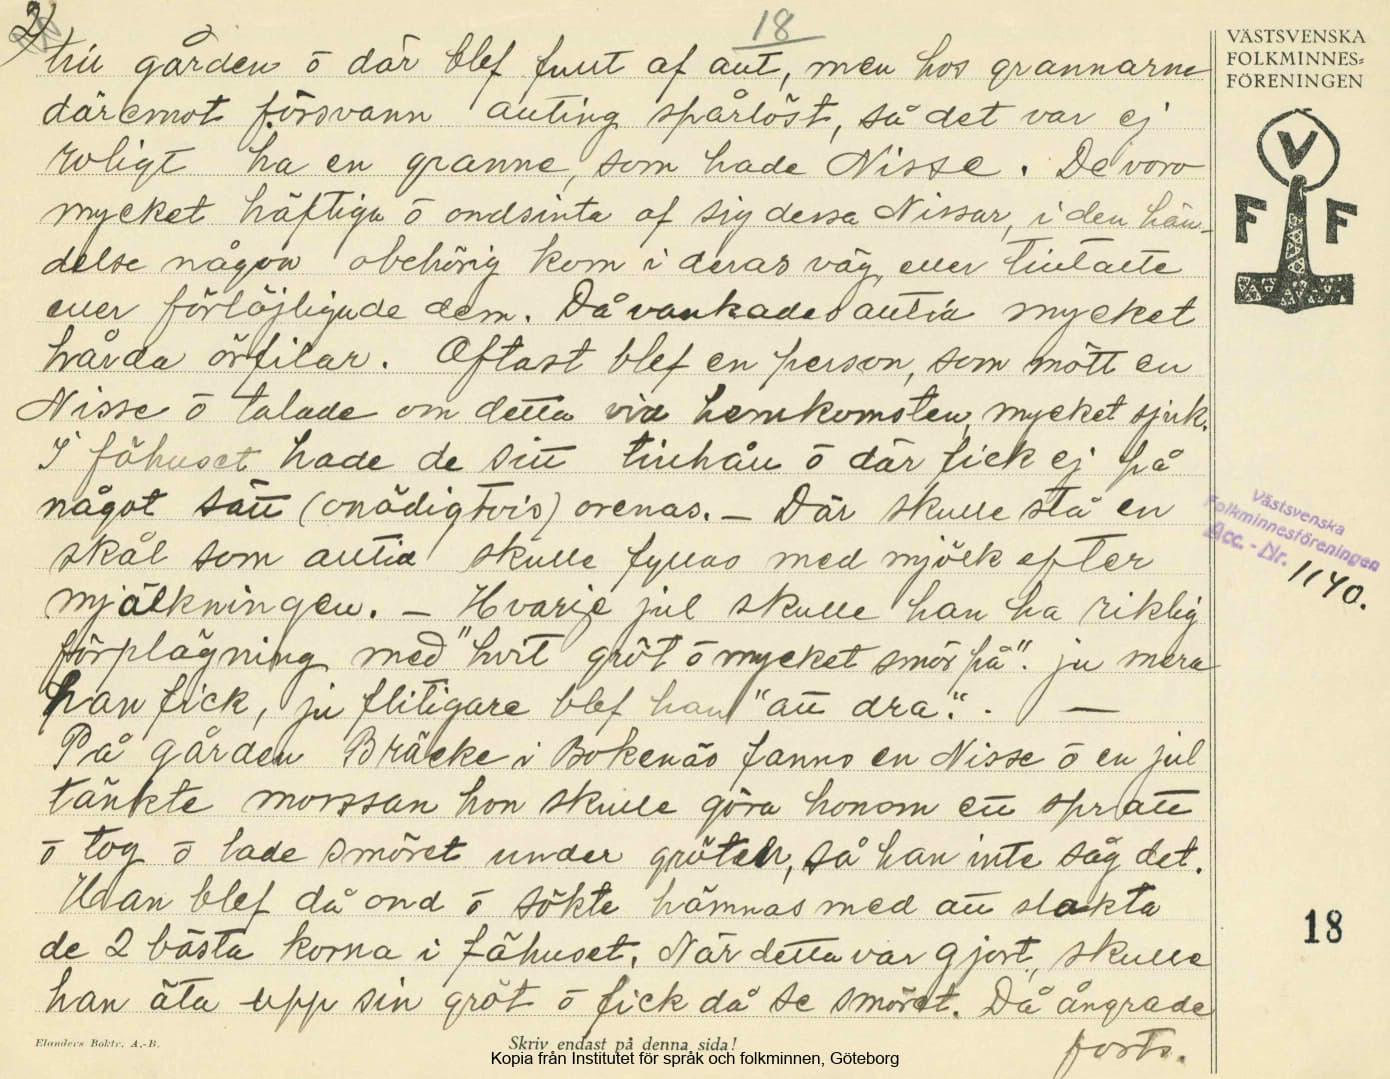 2)
18
till gården ō där blef fullt af allt, men hos grannarna
däremot försvann allting spårlöst, så det var ej
roligt ha en granne, som hade Nisse. De voro
mycket häftiga ō ondsinta af sig dessa Nissar, i den hän-
delse någon obehörig kom i deras väg, eller tilltalte
eller förlöjligade dem. Då vankades alltid mycket
hårda örfilar. Oftast blef en person, som mött en
Nisse ō talade om detta vid hemkomsten, mycket sjuk.
I fähuset hade de sitt tillhåll ō där fick ej på
något sätt (onödigtvis) orenas. — Där skulle stå en
skål som alltid skulle fyllas med mjölk efter
mjälkningen. — Hvarje jul skulle han ha riklig
förplägning med "hvit gröt ō mycket smör på". ju mera
han fick, ju flitigare blef han "att dra". . —
På gården Bräcke i Bokenäs fanns en Nisse ō en jul
tänkte morssan hon skulle göra honom ett spratt
ō tog ō lade smöret under gröten, så han inte såg det.
Han blef då ond ō sökte hämnas med att slakta
de 2 bästa korna i fähuset. När detta var gjort, skulle
han äta upp sin gröt ō fick då se smöret. Då ångrade
forts.
VÄSTSVENSKA
FOLKMINNES=
FÖRENINGEN
V
F F
Västsvenska
Folkminnesföreningen
Acc. - Nr. 1140.
18
Elanders Boktr. A.-B.
Skriv endast på denna sida!
Kopia från Institutet för språk och folkminnen, Göteborg